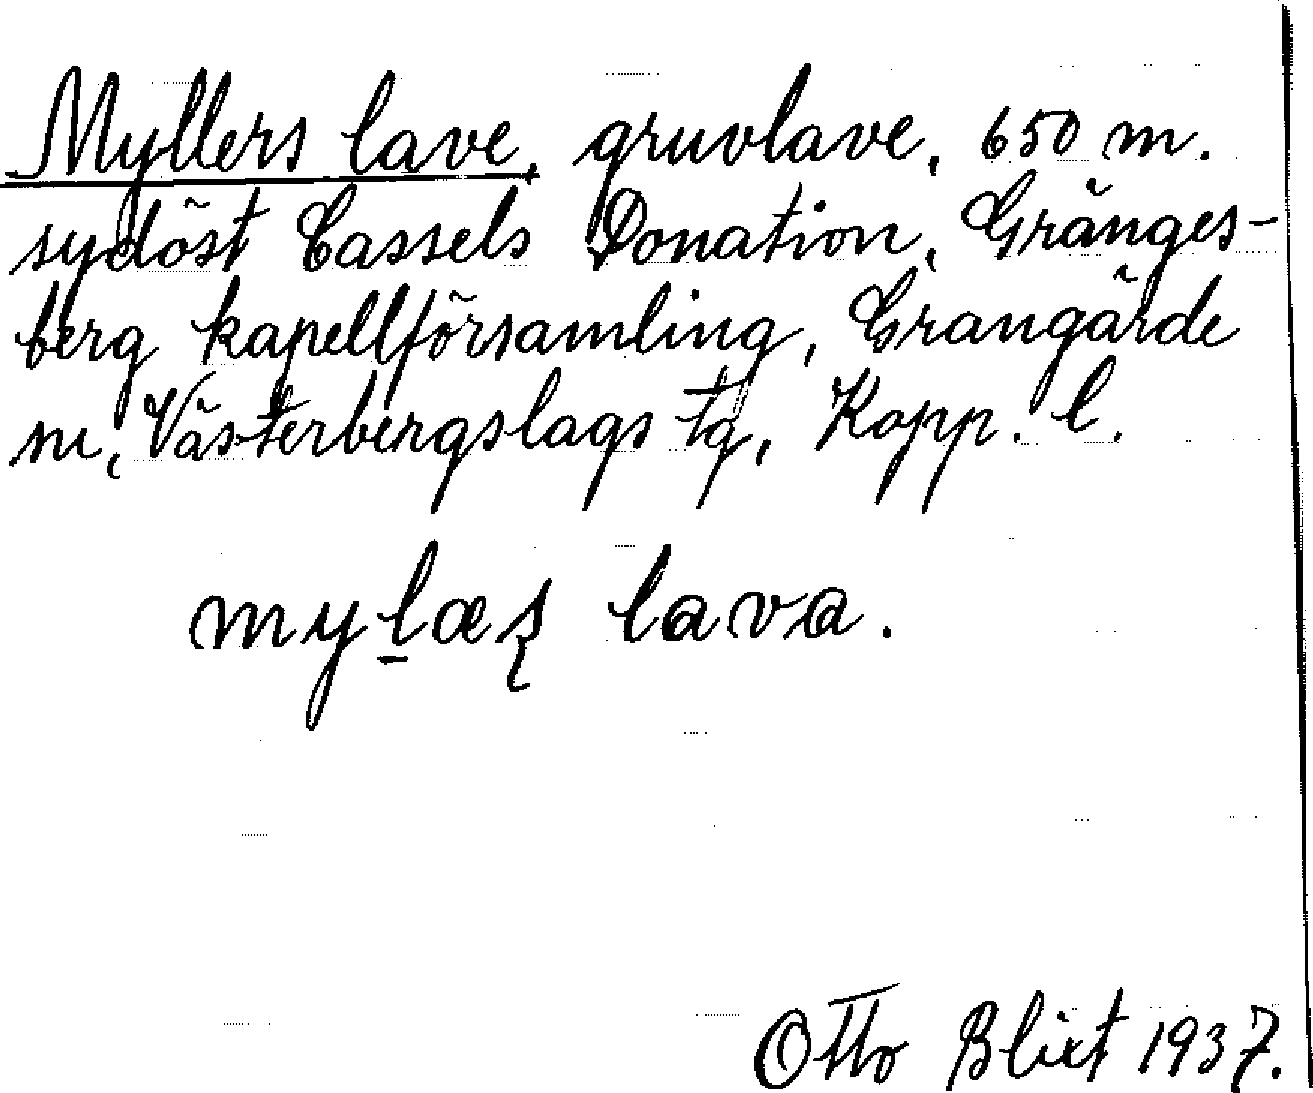 Myllers lave, gruvlave, 650 m.
sydöst Cassels Donation, Gränges-
berg kapellförsamling, Grangärde
sn, Västerbergslags tg, Kopp. l.
mylæʂ lava.
Otto Blixt 1937.